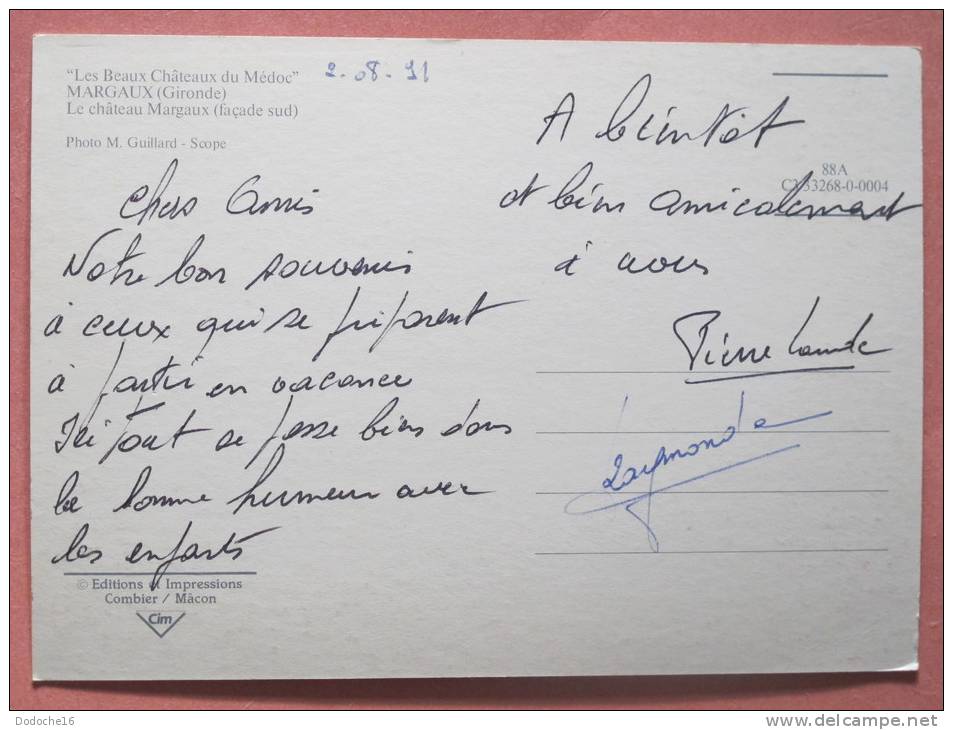 "Les Beaux Châteaux du Médoc"
MARGAUX (Gironde)
Le château Margaux (façade sud)
Photo M. Guillard - Scope
2-08-91
Chers Amis
Notre bon souvenir
à ceux qui se préparent
à partir en vacance
Ici tout se passe bien dans
la bonne humeur avec
les enfants
© Editions et Impressions
Combier / Mâcon
Cim
A bientôt
88A
C3 33268-0-0004
et bien amicalement
à vous
Pierre
Raymonde
Dodoche16
www.delcampe.net